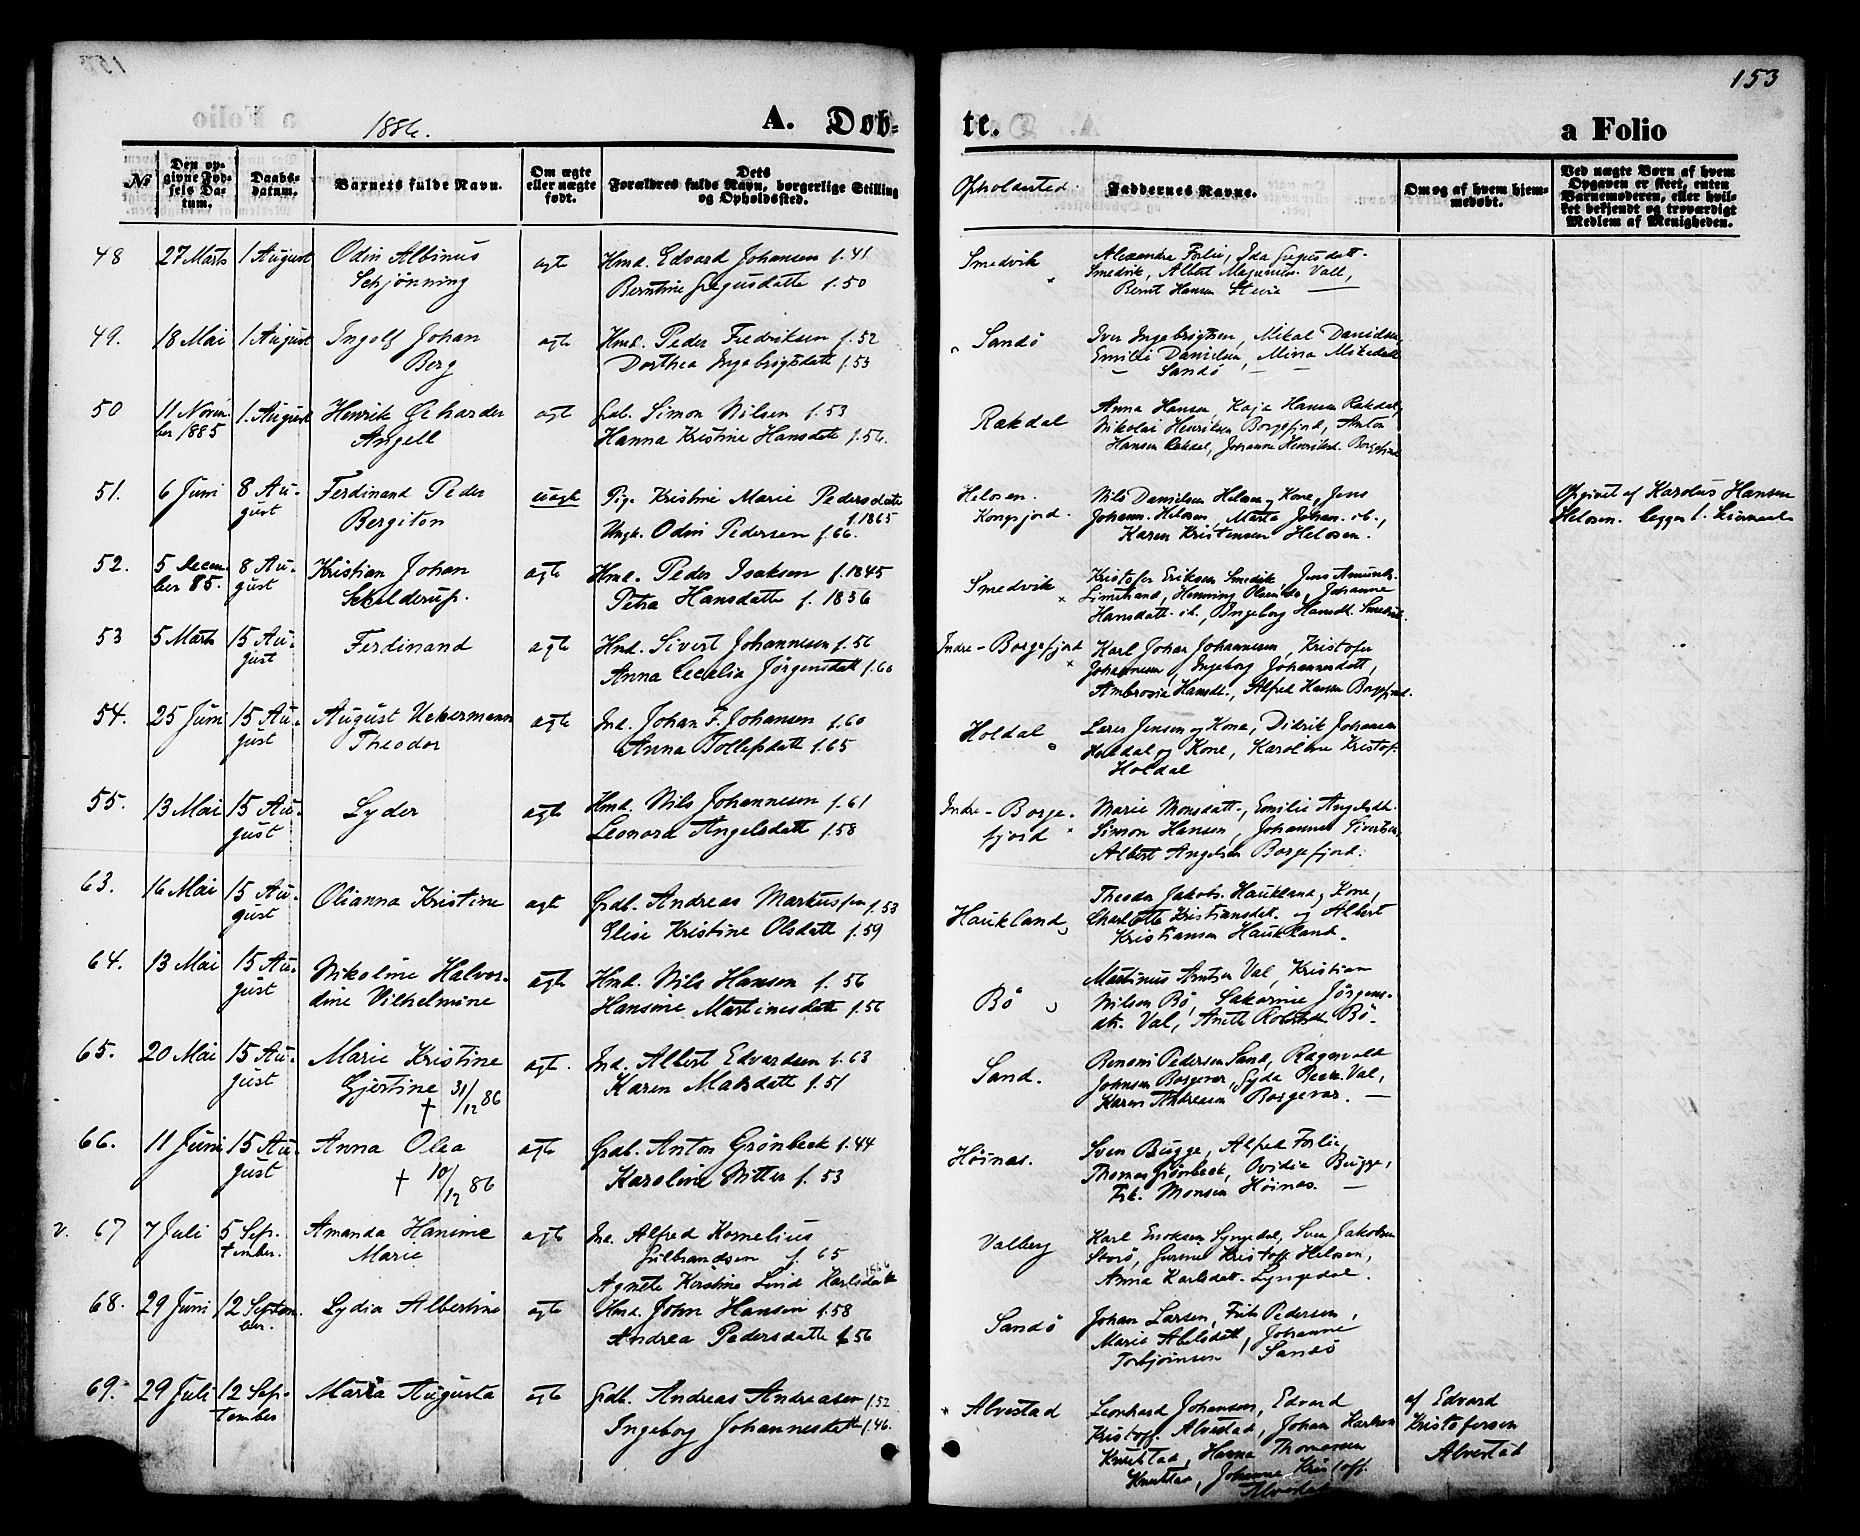 153
1886.
A. Døb-
te.
a Folio
No
Den op-
givne Fød-
sels Da-
tum.
Daabs-
datum.
Barnets fulde Navn.
Om ægte
eller uægte
født.
Dets
Forældres fulde Navn, borgerlige Stilling
og Opholdssted.
Opholdssted.
Faddernes Navne.
Om og af hvem hjem-
medøbt.
Ved uægte Børn af hvem
Opgaven er skeet, enten
Barnemoderen, eller hvil-
ket bekjendt og troværdigt
Medlem af Menigheden.
48
27 Marts
1 August
Odin Albinus
Schjønning
ægte
Hmd. Edvard Johansen f. 41
Berntine f. 50
Smedvik
Alexander Ida
Smedvik, Albert Vall,
Bernt Hansen
49.
18 Mai
1 August
Ingolf Johan
Berg
ægte
Hmd. Peder Fredriksen f. 52
Dorthea Ingebrigtsdatt f. 53
Sandö
Iver Ingebrigtsen, Mikal Danielsen,
Emilie Danielsen, Mina
Sandö
50
11 Novem-
ber 1885
1. August
Henrik Gerharder
Angell
ægte
Gdb. Simon Nilsen f. 53
Hanna Kristine Hansdatt f. 56.
Rakdal
Anna Hansen, Kaja Hansen Rakdal,
Nikolai Henriksen Borgefjord, Anton
Hansen Rakdal, Johanna Henriksd. Borgefjord
51.
6 Juni
8 Au-
gust
Ferdinand Peder
Bergiton
uægte
Pige Kristine Marie Pedersdatt
f. 1865
Ungk. Odin Pedersen f. 66.
Helosen.
Kongsjord.
Nils Danielsen Helosen og Kone, Jens
Johann. Helosen, Marta Johan. ib.,
Karen Kristensen Helosen.
Opgivet af Karolus Hansen
Helosen.
52.
5 Decem-
ber 85.
8 Au-
gust
Kristian Johan
Schelderup.
ægte
Hmd. Peder Isaksen f. 1845
Petra Hansdatte f. 1856
Smedvik
Kristofer Eriksen Smedvik, Jens
Henning Johanne
Hansdatt. ib., Ingeborg Hansdt. Smedvik
53
5 Marts
15 Au-
gust
Ferdinand
ægte
Hmd. Sivert Johannesen f. 56
Anna Cecelia Jörgensdatt f. 60
Indre-Borgefjord
Karl Johan Johannesen, Kristofer
Johannesen, Ingeborg Johannesdatt,
Ambrosia Hansdt., Alfred Hansen Borgefjord.
54.
25 Juni
15 Au-
gust
August Uekermann
Theodor
ægte
Ind. Johan F. Johansen f. 60
Anna Tollefsdatt f. 65
Holdal
Lars Jensen og Kone, Didrik Johansen
Holdal og Kone, Karoline Kristof.
Holdal
55.
13 Mai
15 Au-
gust
Lyder
ægte
Hmd. Nils Johannesen f. 61
Leonora Angelsdatt f. 58
Indre-Borge-
fjord
Marie Monsdatt., Emilie Angelsdt.
Simon Hansen, Johannes Sivertsen,
Albert Angelsen Borgefjord.
63.
16 Mai
15 Au-
gust
Olianna Kristine
ægte
Grdb. Andreas Markussen f. 53
Elise Kristine Olsdatt f. 59
Haukland
Theodor Jakobs. Haukland og Kone,
Charlotte Kristiansdt. og Albert
Kristiansen Haukland.
64.
13 Mai
15 Au-
gust
Nikoline Halvor-
dine Vilhelmine
ægte
Hmd. Nils Hansen f. 56
Hansine Martinesdatt f. 56
Bö
Martinus Arntsen Val, Kristian
Nilsen Bö, Sakarine Jörgens-
dt. Val, Anette Bö.
65.
20 Mai
15 Au-
gust
Marie Kristine
Gjertine
† 31/12 86
ægt.
Ind. Albert Edvardsen f. 63
Karen Madsdatt f. 51
Sand.
Benoni Pedersen Sand, Ragnvald
Johnsen Borgevær, Lyda Beck Val,
Karen Andreasen Borgevær.
66.
11 Juni
15 Au-
gust
Anna Olea
† 10/12 86
ægte
Grdb. Anton Grönbeck f. 44
Karoline Nitter f. 53
Höinæs.
Sven Bugge, Alfred Forlie,
Thomas Grönbeck, Ovidia Bugge,
Frk. Monsen Höinæs.
v. 67
7 Juli
5 Sep-
tember.
Amanda Hanine
Marie
ægte
Ind. Alfred Kornelius
Gulbrandsen f. 65
Agnete Kerstine Lind Karlsdatt
1866
Valberg
Karl Eriksen Lyngedal, Sven Jakobsen
Storö, Gurine Kristoff. Helosen,
Anna Karlsdatt. Lyngedal.
68.
29 Juni
12 Septem-
ber.
Lydia Albertine
ægte
Hmd. John Hansen f. 58
Andrea Pedersdatte f. 56
Sandö
Johan Larsen, Frits Pedersen,
Marie Abelsdatt, Johanne
Torbjörnsen Sandö
69.
29 Juli
12 Sep-
tember
Maria Augusta
ægte
Grdb. Andreas Andreasen f. 52
Ingeborg Johannesdatt f. 46.
Alvestad
Leonhard Johansen, Edvard
Kristoff. Alvestad, Johan
Knutstad, Hanna Thomassen
Knutstad, Johanna Kristoff.
Alvestad
af Edvard
Kristofersen
Alvestad